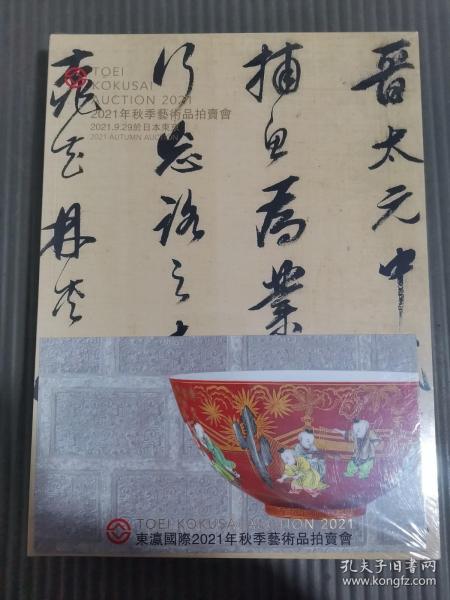 晉太元中
捕魚為業
行忘路之
桃花林夾
TOEI
KOKUSAI
AUCTION 2021
2021年秋季藝術品拍賣會
2021.9.29於日本東京
2021 AUTUMN AUCTION
TOEI KOKUSAI AUCTION 2021
東瀛國際2021年秋季藝術品拍賣會
孔夫子旧书网
www.kongfz.com